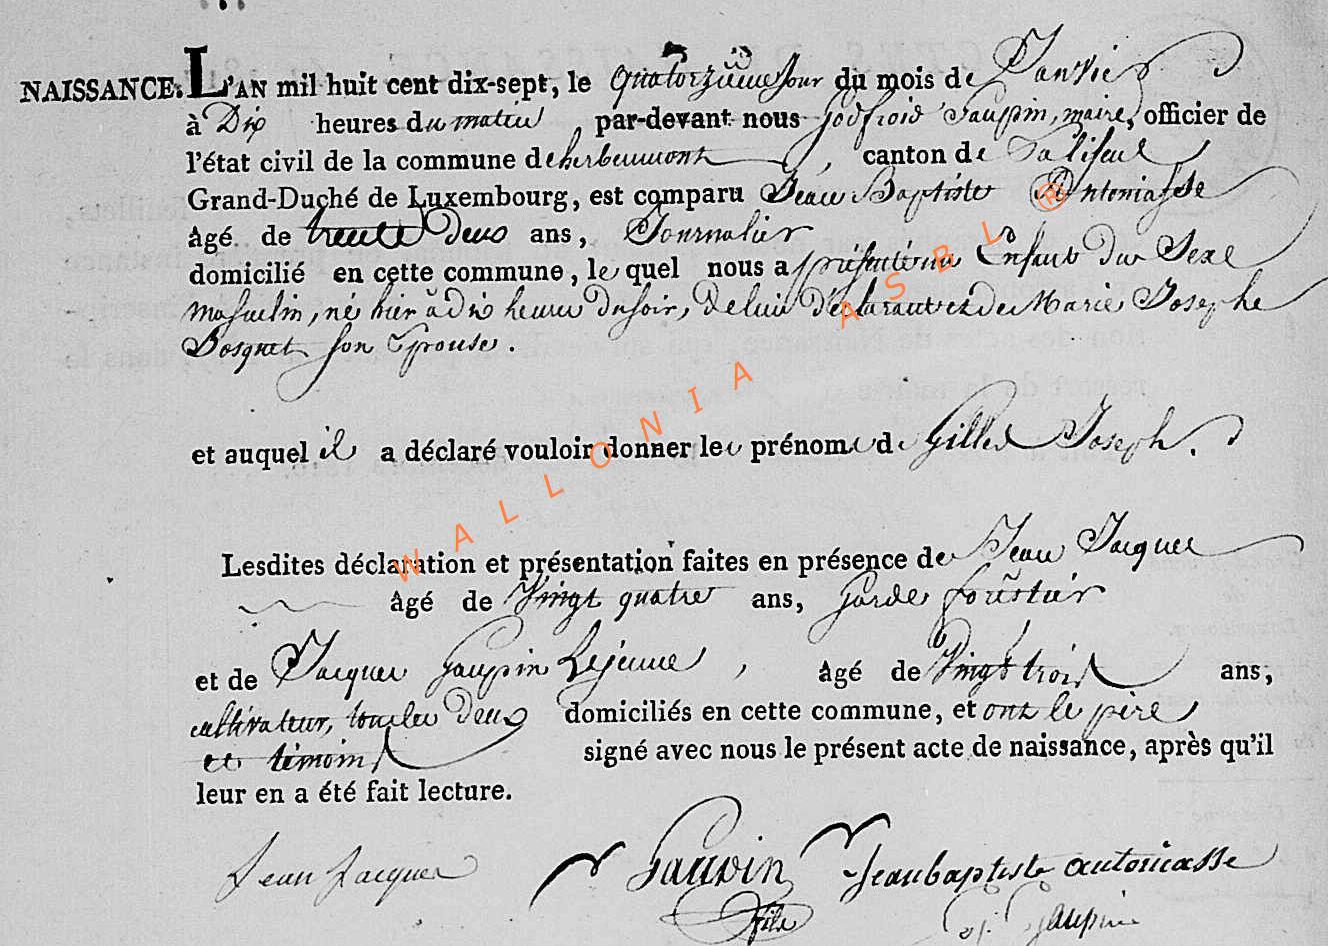 NAISSANCE. L'AN mil huit cent dix-sept, le quatorzieme Jour du mois de Janvier
à Dix heures du matin, par-devant nous Godfroid Gaupin, maire, officier de
l'état civil de la commune de herbeumont, canton de Paliseul
Grand-Duché de Luxembourg, est comparu Jean Baptiste Antoniasse
âgé de trente deux ans, Journalier
domicilié en cette commune, le quel nous a présenté un Enfant Du Sexe
masculin, né hier à dix heures du soir, De lui Déclarant et De Marie Josephe
Bosquet son Epouse.
et auquel il a déclaré vouloir donner les prénoms de Gilles Joseph.
Lesdites déclaration et présentation faites en présence de Jean Jacques
âgé de Vingt quatre ans, Garde forestier
et de Jacques Gaupin Lejeune, âgé de Vingt trois ans,
cultivateur, tous les Deux domiciliés en cette commune, et ont le père
et témoins signé avec nous le présent acte de naissance, après qu'il
leur en a été fait lecture.
Jean Jacques Gaupin Jeanbaptiste antoniasse
fils G. Gaupin
WALLONIA ASBL ®